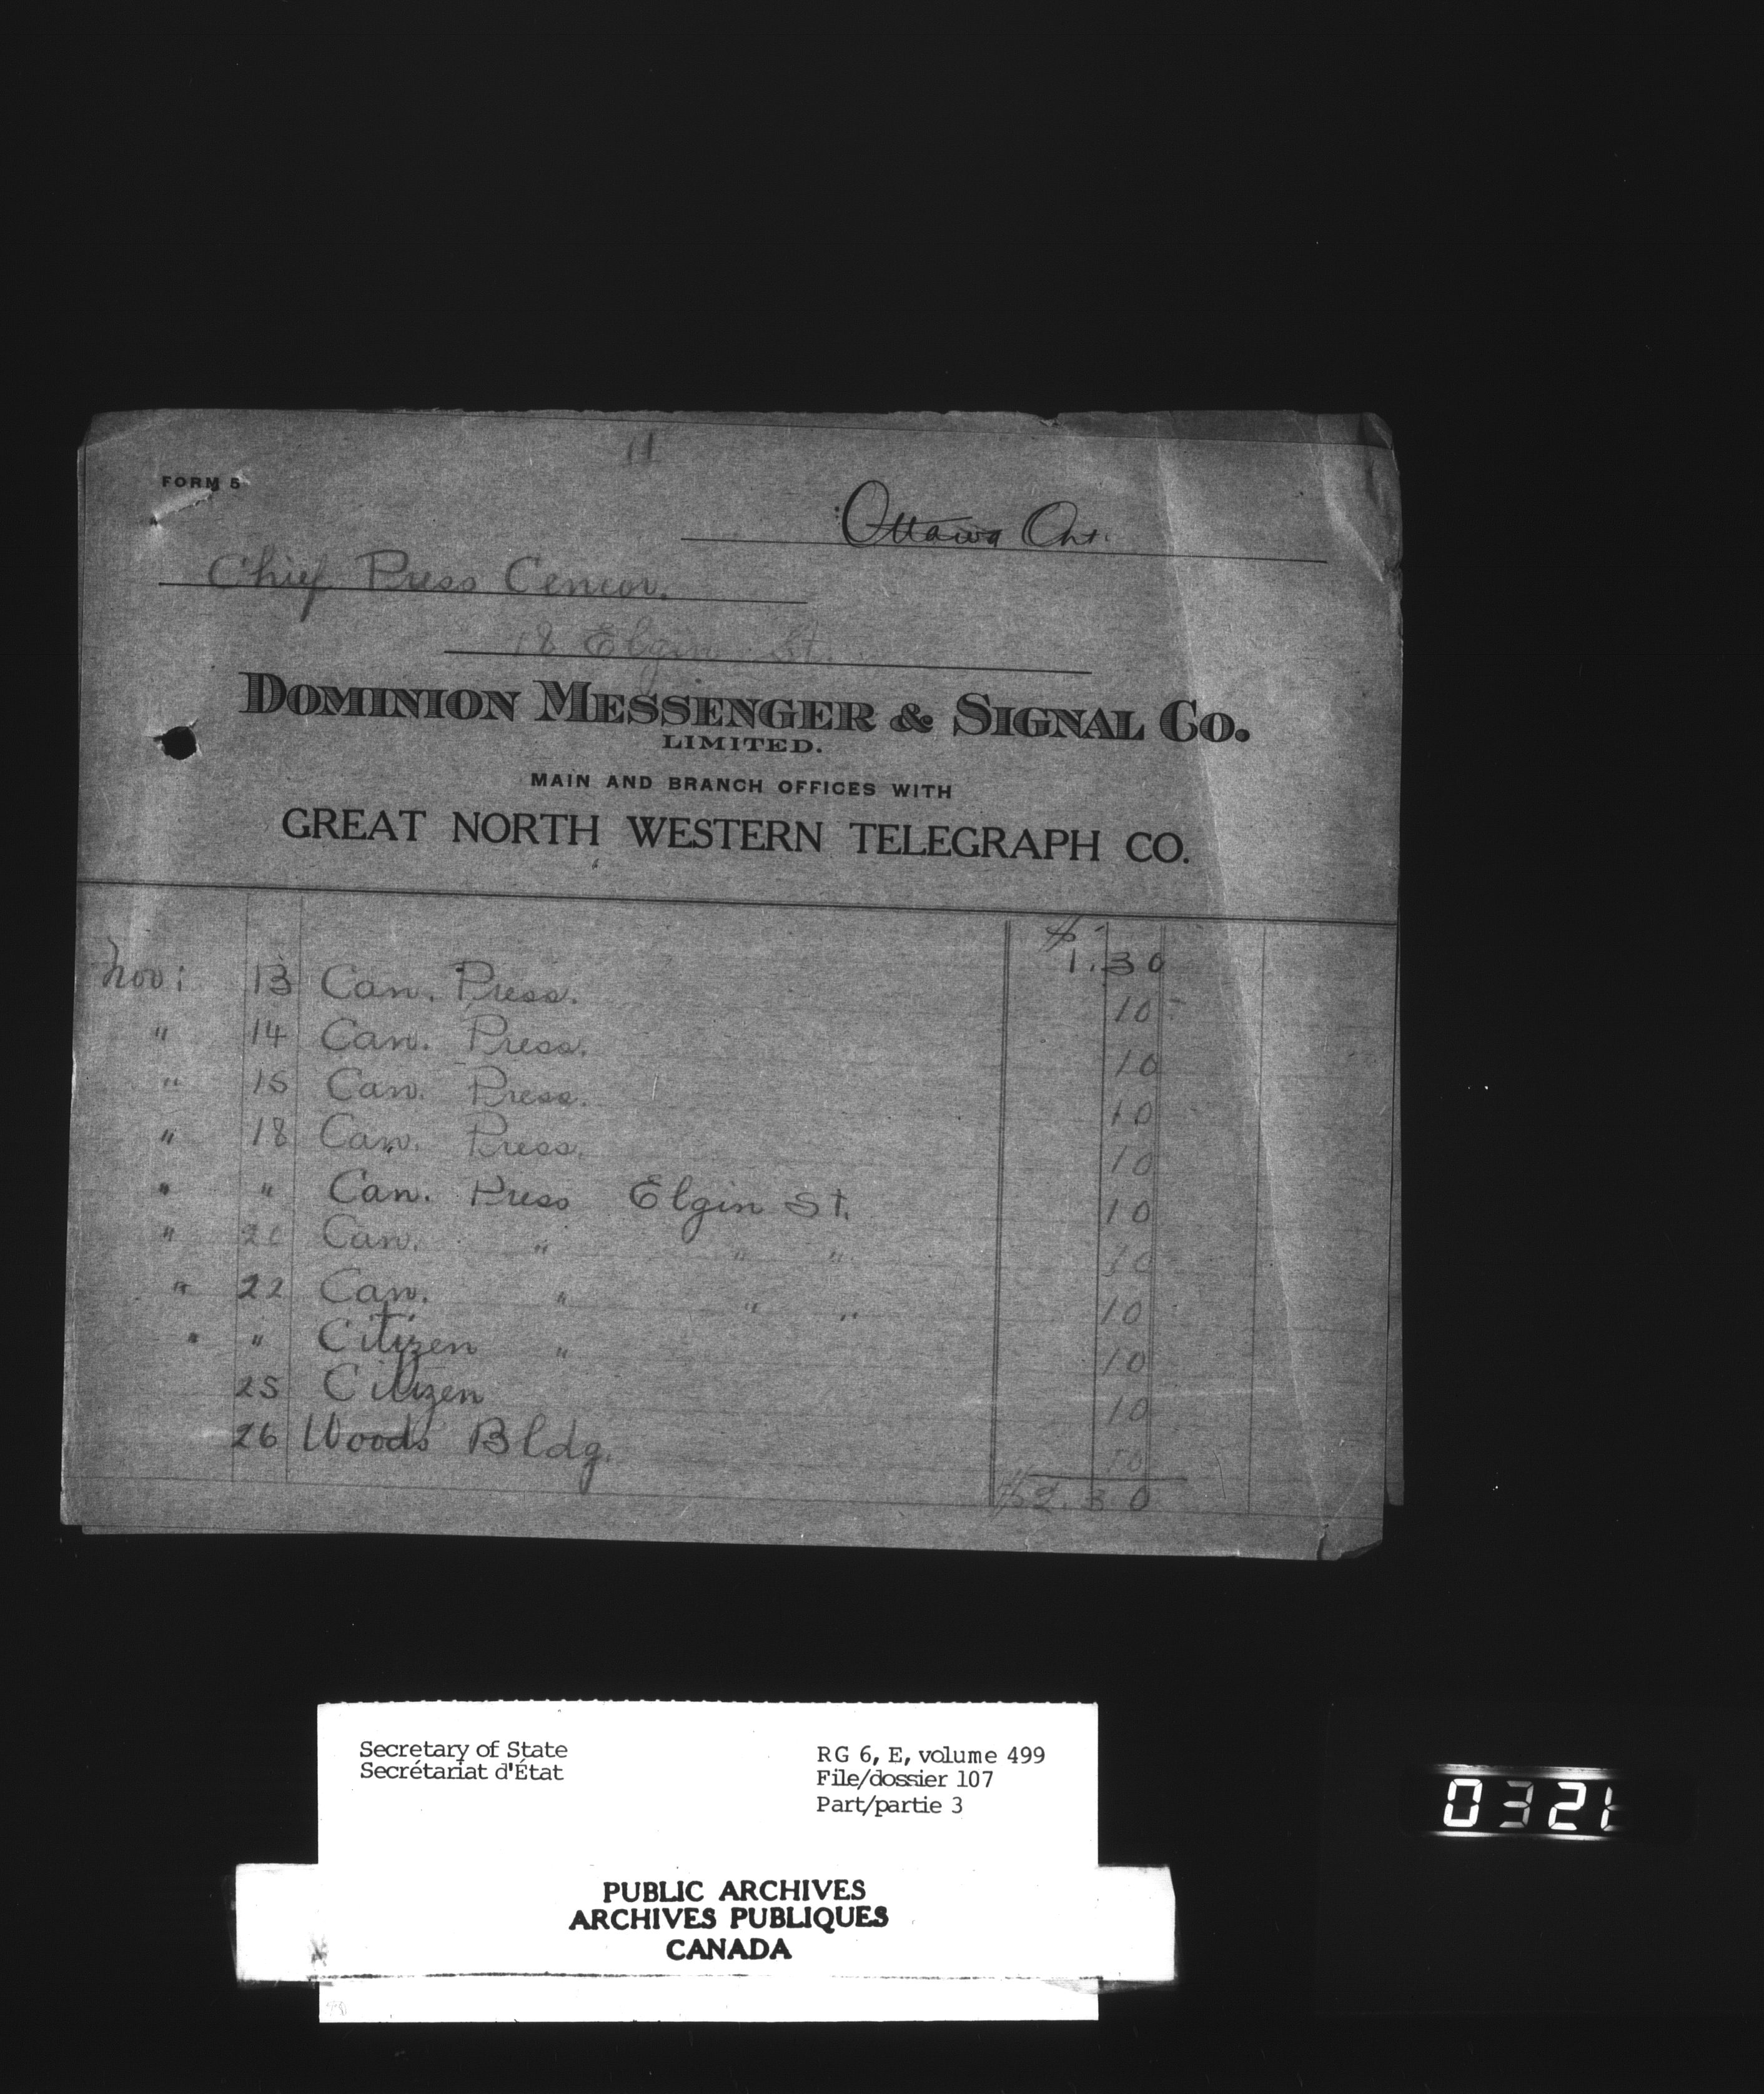 11
FORM 5
Ottawa Ont.
Chief Press Cencor.
18 Elgin St.
DOMINION MESSENGER & SIGNAL CO.
LIMITED.
MAIN AND BRANCH OFFICES WITH
GREAT NORTH WESTERN TELEGRAPH CO.
$1.30
Nov: 13 Can. Press. 10
" 14 Can. Press. 10
" 15 Can. Press. 10
" 18 Can. Press. 10
" " Can. Press Elgin St. 10
" 20 Can. " " " 10
" 22 Can. " " " 10
" " Citizen " 10
25 Citizen 10
26 Woods Bldg. 10
$2.30
Secretary of State
Secrétariat d'État
RG 6, E, volume 499
File/dossier 107
Part/partie 3
PUBLIC ARCHIVES
ARCHIVES PUBLIQUES
CANADA
0321